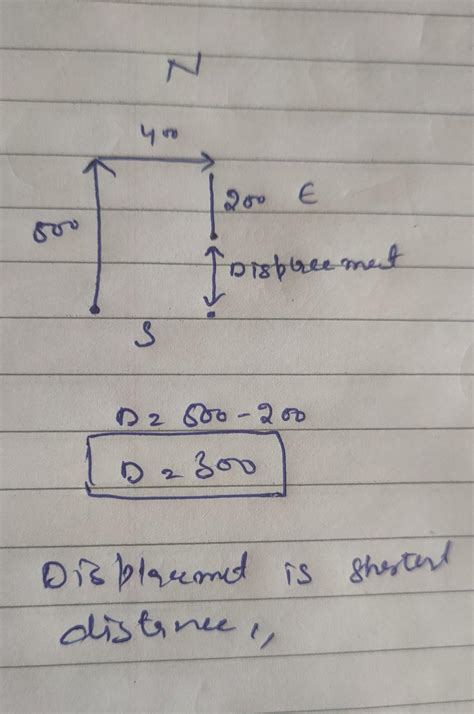 N
400
500
200 E
Displacement
S
D = 500 - 200
D = 300
Displacement is shortest
distance,,